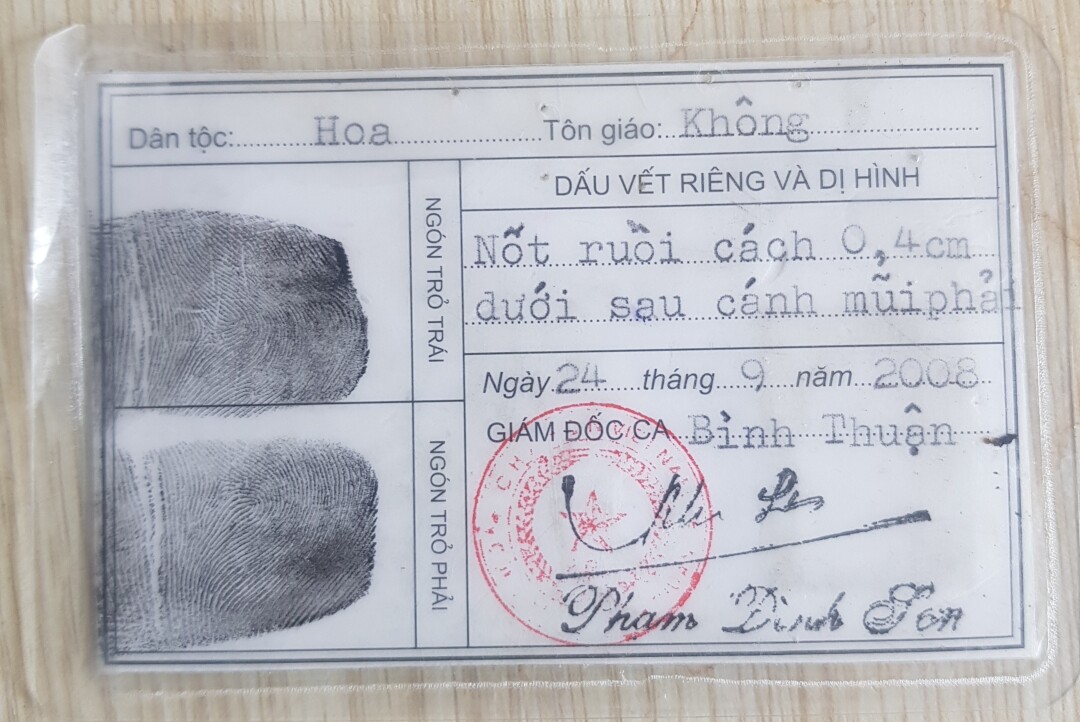 Dân tộc: Hoa Tôn giáo: Không
NGÓN TRỎ TRÁI
DẤU VẾT RIÊNG VÀ DỊ HÌNH
Nốt ruồi cách 0,4cm
dưới sau cánh mũi phải
Ngày 24 tháng 9 năm 2008
NGÓN TRỎ PHẢI
GIÁM ĐỐC CA Bình Thuận
Phạm Đình Sơn